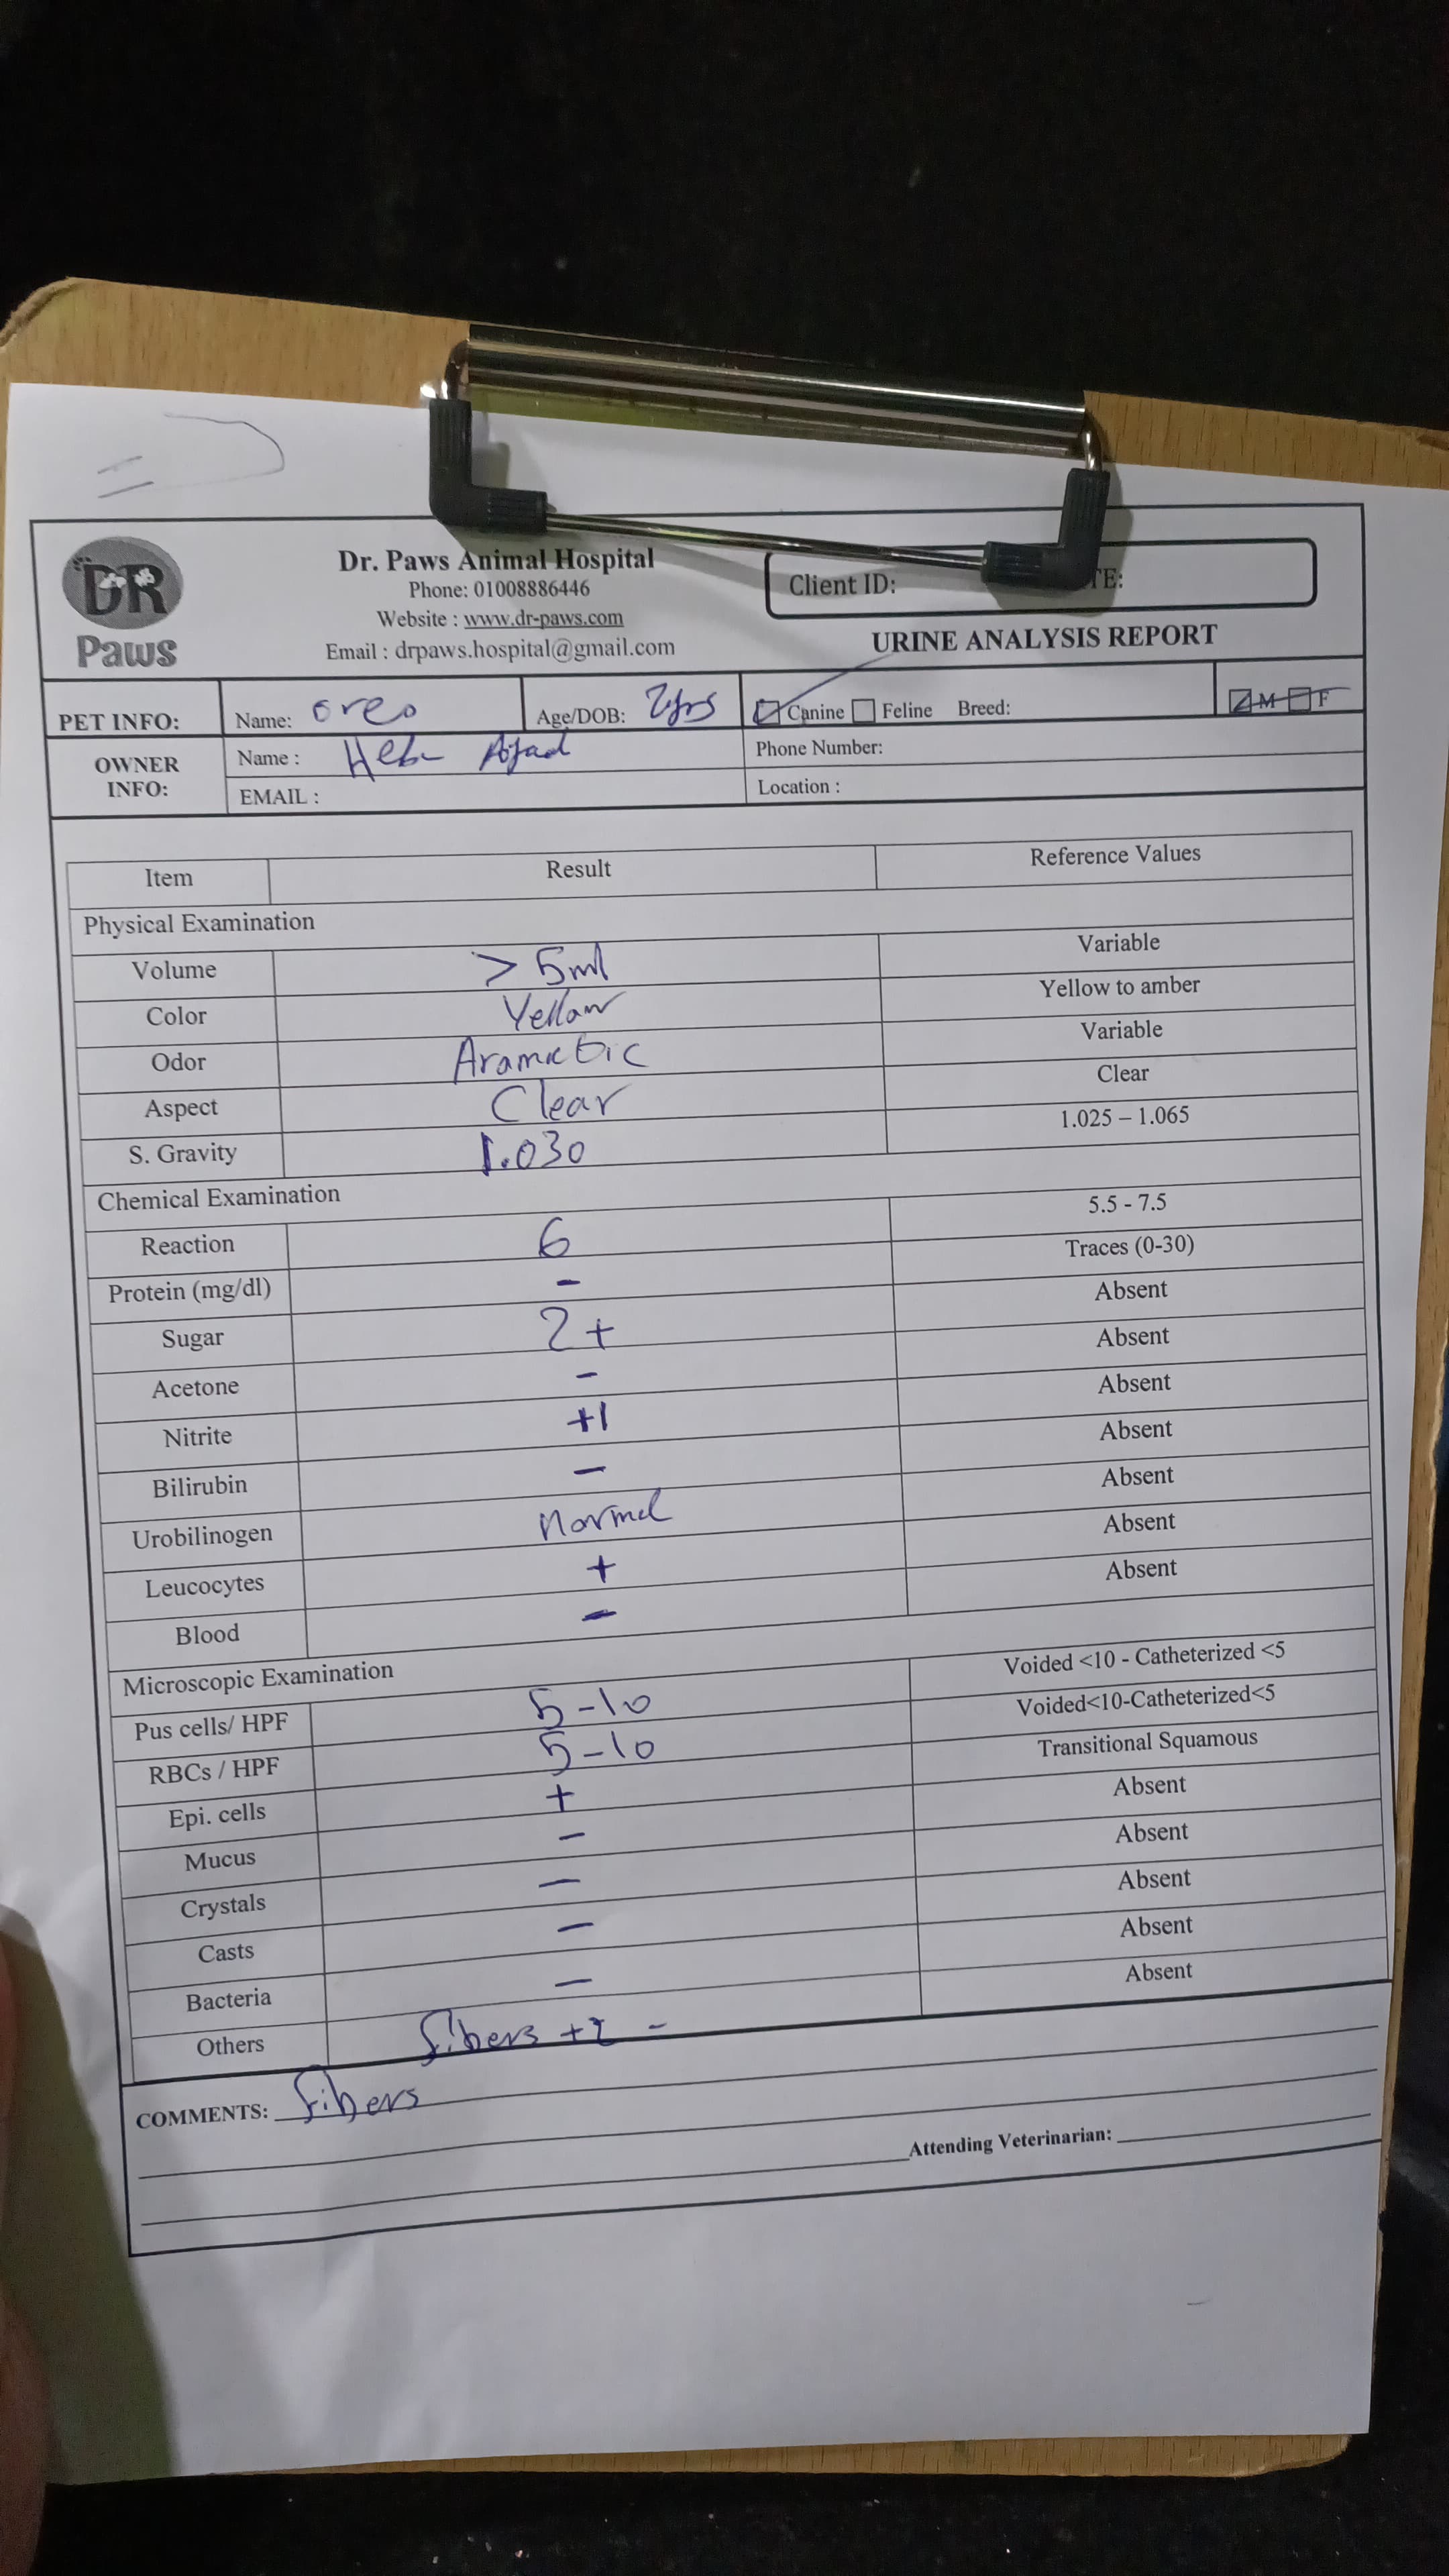 DR
Paws
Dr. Paws Animal Hospital
Phone: 01008886446
Website : www.dr-paws.com
Email : drpaws.hospital@gmail.com
Client ID: TE:
URINE ANALYSIS REPORT
PET INFO: Name: oreo Age/DOB: 2yrs Canine Feline Breed: M F
OWNER INFO: Name : Heba Phone Number:
EMAIL : Location :
Item Result Reference Values
Physical Examination
Volume > 5ml Variable
Color Yellow Yellow to amber
Odor Aramatic Variable
Aspect Clear Clear
S. Gravity 1.030 1.025 – 1.065
Chemical Examination
Reaction 6 5.5 - 7.5
Protein (mg/dl) - Traces (0-30)
Sugar 2+ Absent
Acetone - Absent
Nitrite +1 Absent
Bilirubin - Absent
Urobilinogen normal Absent
Leucocytes + Absent
Blood - Absent
Microscopic Examination
Pus cells/ HPF 5-10 Voided <10 - Catheterized <5
RBCs / HPF 5-10 Voided<10-Catheterized<5
Epi. cells + Transitional Squamous
Mucus - Absent
Crystals - Absent
Casts - Absent
Bacteria - Absent
Others fibers +2 - Absent
COMMENTS: fibers
Attending Veterinarian: